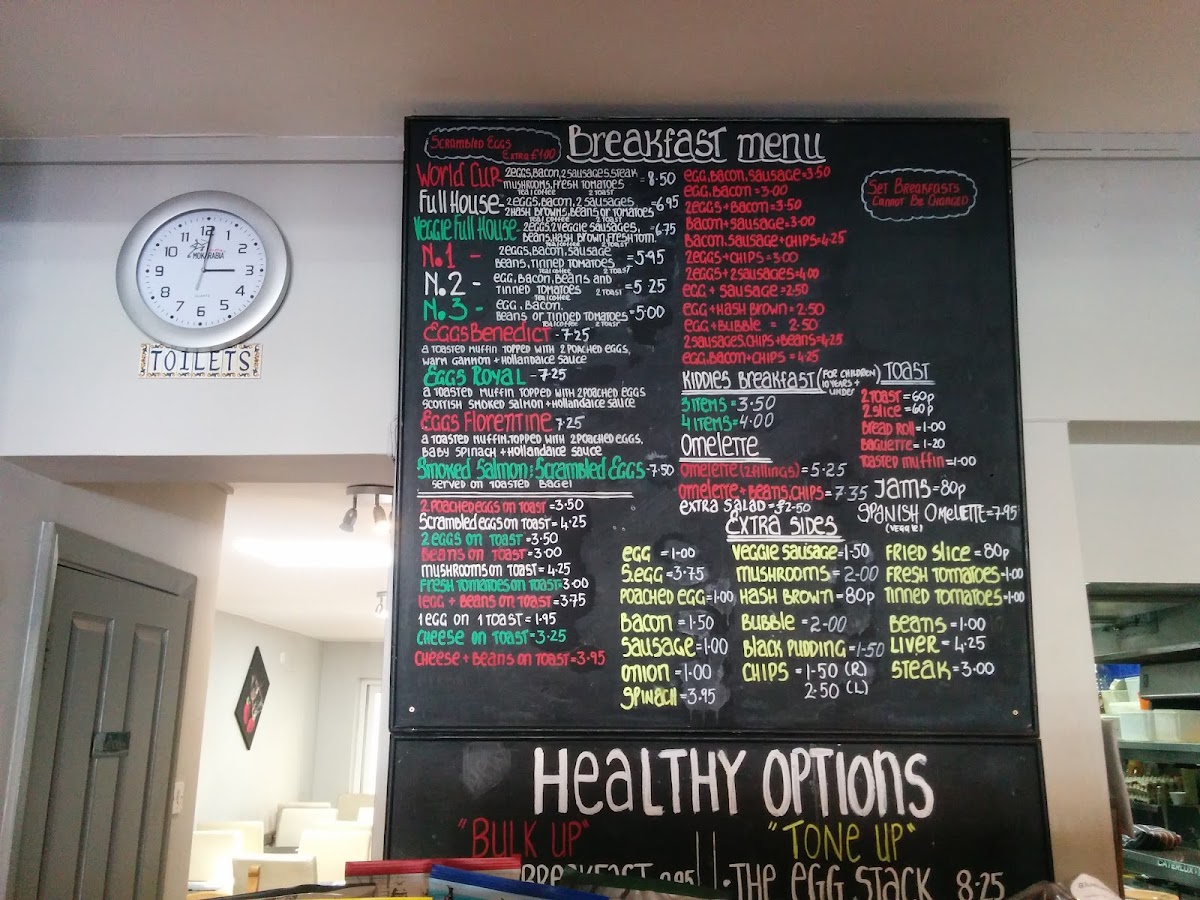 12
1
2
3
4
5
6
7
8
9
10
11
MOKARABIA
QUARTZ
TOILETS
Scrambled Eggs
Extra £1.00
Breakfast menu
Set Breakfasts
Cannot Be Changed
World Cup - 2eggs, Bacon, 2sausages, steak = 8.50
mushrooms, Fresh tomatoes
Tea/coffee 2 toast
Full House - 2eggs, Bacon, 2 sausages = 6.95
2Hash Browns, Beans or tomatoes
Tea/coffee 2 toast
Veggie Full House - 2eggs, 2veggie sausages, = 6.75
Beans, Hash Brown, Fresh tom.
Tea/coffee 2 toast
N.1 - 2eggs, Bacon, sausage = 5.95
Beans, tinned tomatoes
Tea/coffee 2 toast
N.2 - egg, Bacon, Beans and = 5.25
tinned tomatoes 2 toast
Tea/coffee
N.3 - egg, Bacon, = 5.00
Beans or tinned tomatoes
Tea/coffee 2 toast
Eggs Benedict - 7.25
a toasted muffin topped with 2 poached eggs,
warm gammon + hollandaice sauce
Eggs Royal - 7.25
a toasted muffin topped with 2poached eggs
scottish smoked salmon + hollandaice sauce
Eggs Florentine 7.25
a toasted muffin, topped with 2poached eggs,
baby spinach + hollandaice sauce
Smoked Salmon; Scrambled Eggs - 7.50
served on toasted bagel
2 poached eggs on toast = 3.50
Scrambled eggs on toast = 4.25
2 eggs on toast = 3.50
Beans on toast = 3.00
mushrooms on toast = 4.25
Fresh tomatoes on toast = 3.00
1egg + Beans on toast = 3.75
1 egg on 1 toast = 1.95
Cheese on toast = 3.25
Cheese + Beans on toast = 3.95
egg, Bacon, sausage = 3.50
egg, Bacon = 3.00
2eggs + Bacon = 3.50
Bacon + sausage = 3.00
Bacon, sausage + chips = 4.25
2eggs + chips = 3.00
2eggs + 2sausages = 4.00
egg + sausage = 2.50
egg + Hash Brown = 2.50
egg + Bubble = 2.50
2sausages, chips + Beans = 4.25
egg, Bacon + chips = 4.25
Kiddies Breakfast (for children 10 years + under)
3 items = 3.50
4 items = 4.00
Omelette
Omelette (2 fillings) = 5.25
Omelette + Beans, chips = 7.35
extra salad = £2.50
Toast
2 toast = 60p
2 slice = 60p
Bread roll = 1.00
Baguette = 1.20
Toasted muffin = 1.00
Jams = 80p
Spanish Omelette = 7.95
(veggie)
Extra Sides
egg = 1.00
S.egg = 3.75
Poached egg = 1.00
Bacon = 1.50
Sausage = 1.00
Onion = 1.00
Spinach = 3.95
Veggie sausage = 1.50
Mushrooms = 2.00
Hash brown = 80p
Bubble = 2.00
Black pudding = 1.50
Chips = 1.50 (R)
2.50 (L)
Fried slice = 80p
Fresh tomatoes = 1.00
Tinned tomatoes = 1.00
Beans = 1.00
Liver = 4.25
Steak = 3.00
Healthy Options
"Bulk Up"
"Tone Up"
Breakfast
• The Egg Stack 8.25
CATERLUX